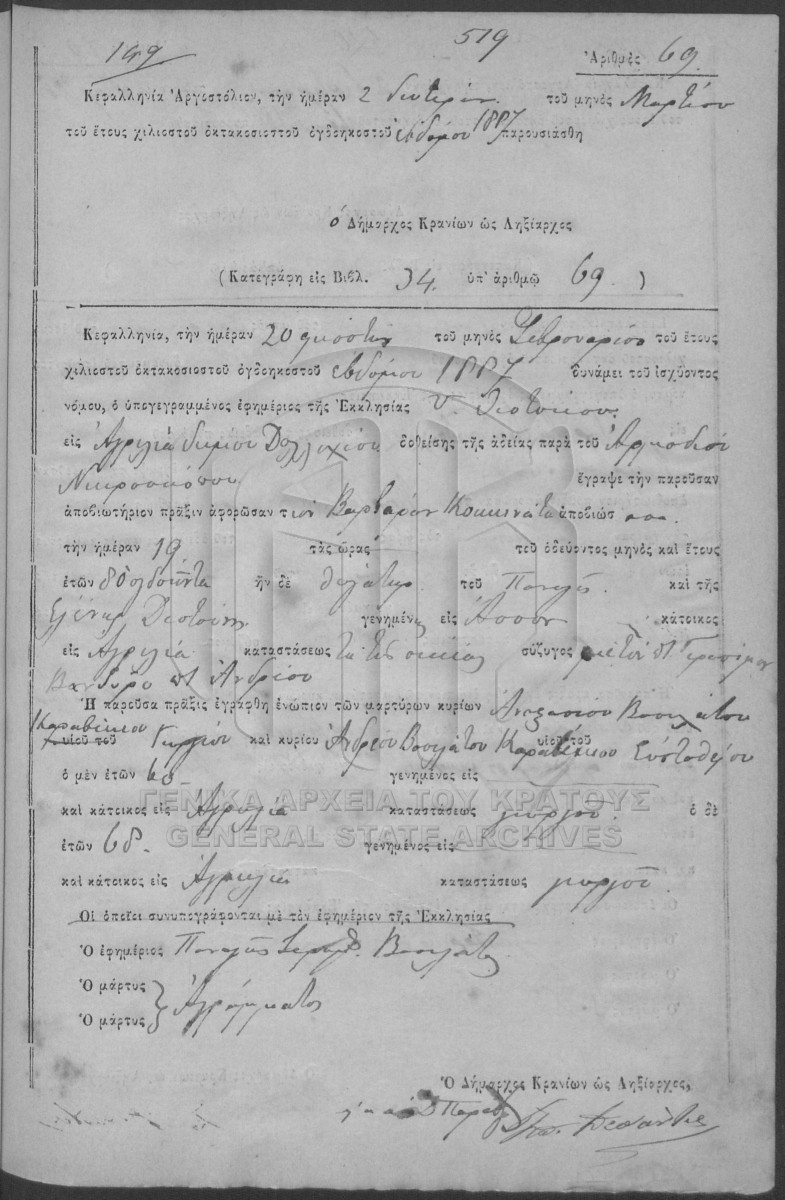 199 519 Ἀριθμὸς 69
Κεφαλληνία Ἀργοστόλιον, τὴν ἡμέραν 2 δευτέραν τοῦ μηνὸς Μαρτίου
τοῦ ἔτους χιλιοστοῦ ὀκτακοσιοστοῦ ὀγδοηκοστοῦ ἑβδόμου 1887 παρουσιάσθη
ὁ Δήμαρχος Κρανίων ὡς Ληξίαρχος
(Κατεγράφη εἰς Βιβλ. 34. ὑπ' ἀριθμῷ 69.)
Κεφαλληνία, τὴν ἡμέραν 20 εικοστην τοῦ μηνὸς Φεβρουαρίου τοῦ ἔτους
χιλιοστοῦ ὀκτακοσιοστοῦ ὀγδοηκοστοῦ εβδομου 1887 δυνάμει τοῦ ἰσχύοντος
νόμου, ὁ ὑπογεγραμμένος ἐφημέριος τῆς Ἐκκλησίας Υ. Θεοτοκου
εἰς Ἀγριλιὰ δήμου δοθείσης τῆς ἀδείας παρὰ τοῦ Αρμοδίου
Νεκροσκόπου ἔγραψε τὴν παροῦσαν
ἀποβιωτήριον πρᾶξιν ἀφορῶσαν τὴν Βαρβάραν Κοκκινάτα ἀποβιώσ
τὴν ἡμέραν 19 τὰς ὥρας τοῦ ὁδεύοντος μηνὸς καὶ ἔτους
ἐτῶν 80 ογδοήντα ἣν δὲ θυγάτηρ τοῦ Παναγῆ καὶ τῆς
Ελένης γενημένη εἰς Ἄσσον κάτοικος
εἰς Ἀγριλιά καταστάσεως της οικίας σύζυγος Γερασίμου
Ανδρέου
Ἡ παροῦσα πρᾶξις ἐγράφθη ἐνώπιον τῶν μαρτύρων κυρίων Βουλάτου
υἱοῦ τοῦ καὶ κυρίου Ἀνδρέου Βουλάτου υἱοῦ τοῦ Εὐσταθίου
ὁ μὲν ἐτῶν γενημένος εἰς
καὶ κάτοικος εἰς Ἀγριλιά καταστάσεως γεωργοῦ. ὁ δὲ
ἐτῶν 68. γενημένος εἰς
καὶ κάτοικος εἰς Ἀγριλιά καταστάσεως γεωργοῦ.
Οἱ ὁποῖοι συνυπογράφονται μὲ τὸν ἐφημέριον τῆς Ἐκκλησίας
Ὁ ἐφημέριος Παναγῆς Βουλάτος
Ὁ μάρτυς
Ὁ μάρτυς } Ἀγράμματοι
Ὁ Δήμαρχος Κρανίων ὡς Ληξίαρχος,
ΓΕΝΙΚΑ ΑΡΧΕΙΑ ΤΟΥ ΚΡΑΤΟΥΣ
GENERAL STATE ARCHIVES